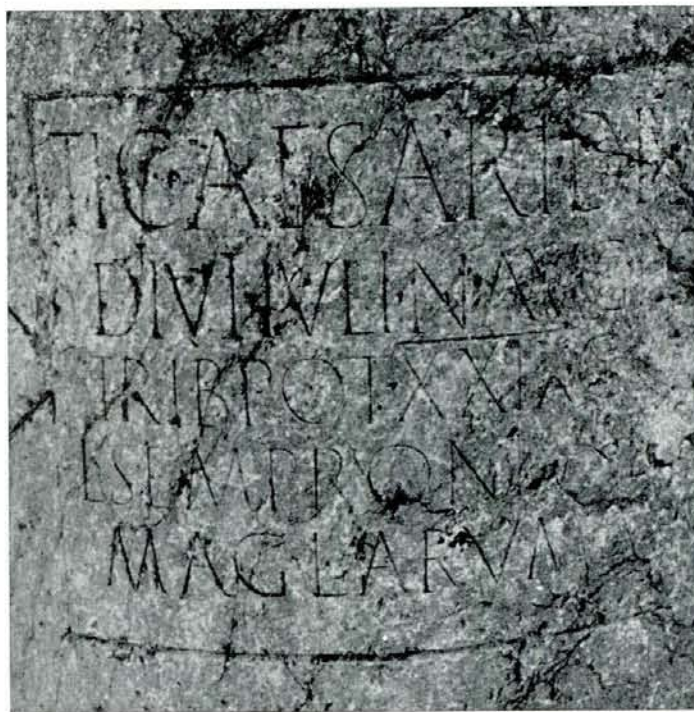 TI CAESARI
DIVI IVLI N AVG
TRIB POT XXI
L SEMPRON
MAG LARVM